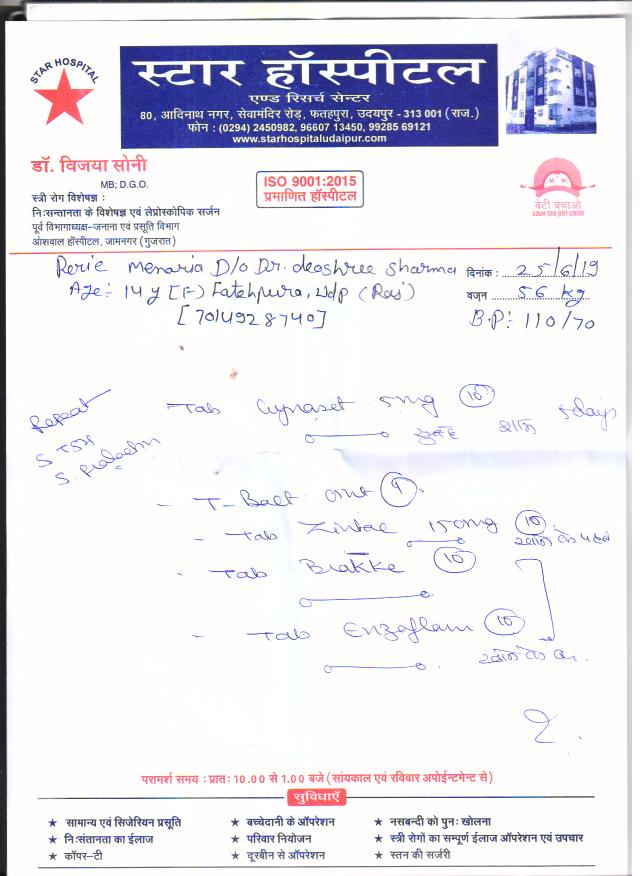 STAR HOSPITAL
स्टार हॉस्पीटल
एण्ड रिसर्च सेन्टर
80, आदिनाथ नगर, सेवामंदिर रोड़, फतहपुरा, उदयपुर - 313 001 (राज.)
फोन : (0294) 2450982, 96607 13450, 99285 69121
www.starhospitaludaipur.com
डॉ. विजया सोनी
MB; D.G.O.
स्त्री रोग विशेषज्ञ :
नि:सन्तानता के विशेषज्ञ एवं लेप्रोस्कोपिक सर्जन
पूर्व विभागाध्यक्ष-जनाना एवं प्रसूति विभाग
ओशवाल हॉस्पीटल, जामनगर (गुजरात)
ISO 9001:2015
प्रमाणित हॉस्पीटल
बेटी बचाओ
save the girl child
Menaria D/o Dr. deoshree Sharma
दिनांक : 25/6/19
Age:- 14 y [F] Fatehpura, Udp (Raj)
वजन 56 kg
[7014928740]
B.P: 110/70
Repeat
S TSH
- Tab 5mg (10)
सुबह शाम 5 days
- T-
- Tab 150mg (10)
खाने के पहले
- Tab (10)
- Tab Enzoflam (10)
खाने के
परामर्श समय : प्रात: 10.00 से 1.00 बजे (सांयकाल एवं रविवार अपोईन्टमेन्ट से)
सुविधाएँ
★ सामान्य एवं सिजेरियन प्रसूति ★ बच्चेदानी के ऑपरेशन ★ नसबन्दी को पुन: खोलना
★ नि:संतानता का ईलाज ★ परिवार नियोजन ★ स्त्री रोगों का सम्पूर्ण ईलाज ऑपरेशन एवं उपचार
★ कॉपर-टी ★ दूरबीन से ऑपरेशन ★ स्तन की सर्जरी